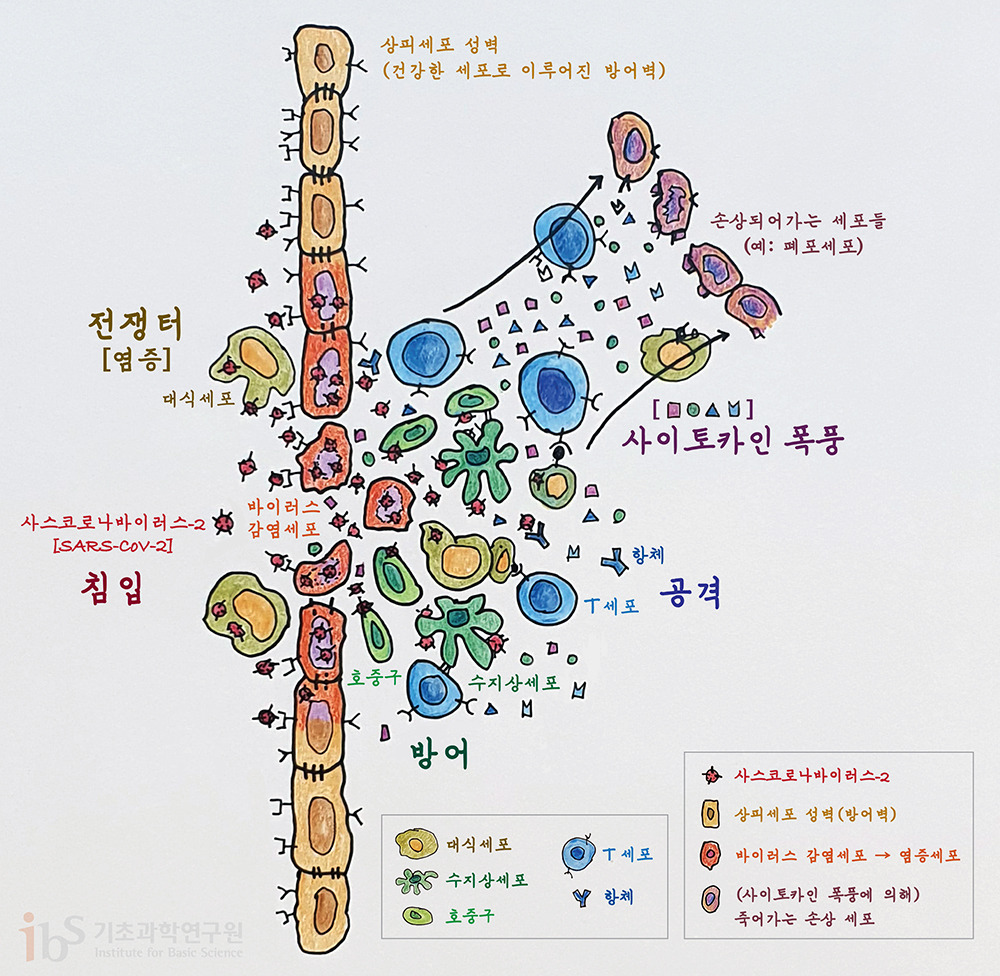 상피세포 성벽
(건강한 세포로 이루어진 방어벽)
손상되어가는 세포들
(예: 폐포세포)
전쟁터
[염증]
대식세포
[ ]
사이토카인 폭풍
바이러스
감염세포
사스코로나바이러스-2
[SARS-CoV-2]
침입
항체
T세포
공격
호중구
수지상세포
방어
대식세포
수지상세포
호중구
T세포
항체
사스코로나바이러스-2
상피세포 성벽(방어벽)
바이러스 감염세포 → 염증세포
(사이토카인 폭풍에 의해)
죽어가는 손상 세포
ibS 기초과학연구원
Institute for Basic Science